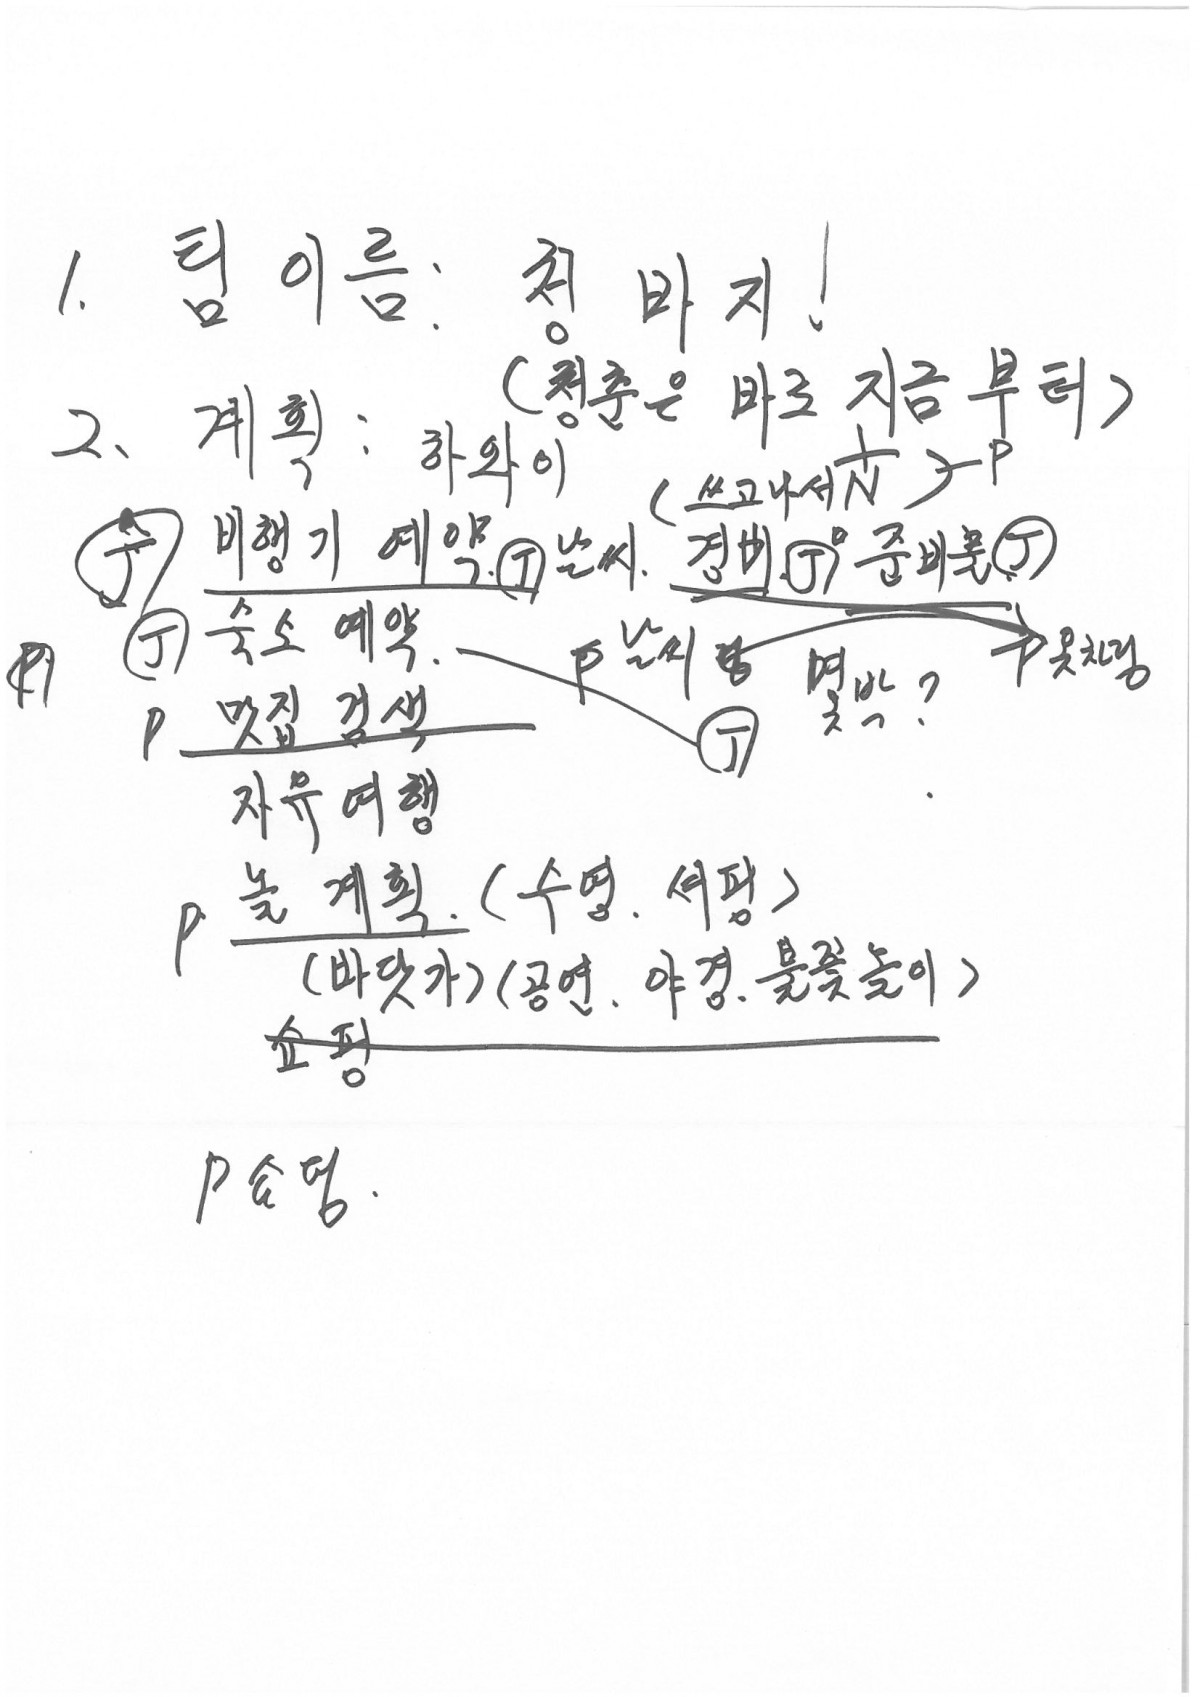 1. 팀 이름: 청 바 지!
(청춘은 바로 지금 부터)
2. 계획: 하와이
(쓰고나서 1/N) P
J 비행기 예약. J 날씨. 경비. J 준비물. J
J 숙소 예약.
P 날씨
P 옷차림
몇박?
P
P 맛집 검색
J
자유여행
P 놀 계획. (수영. 서핑)
(바닷가) (공연. 야경. 불꽃놀이)
쇼핑
P 쇼핑.